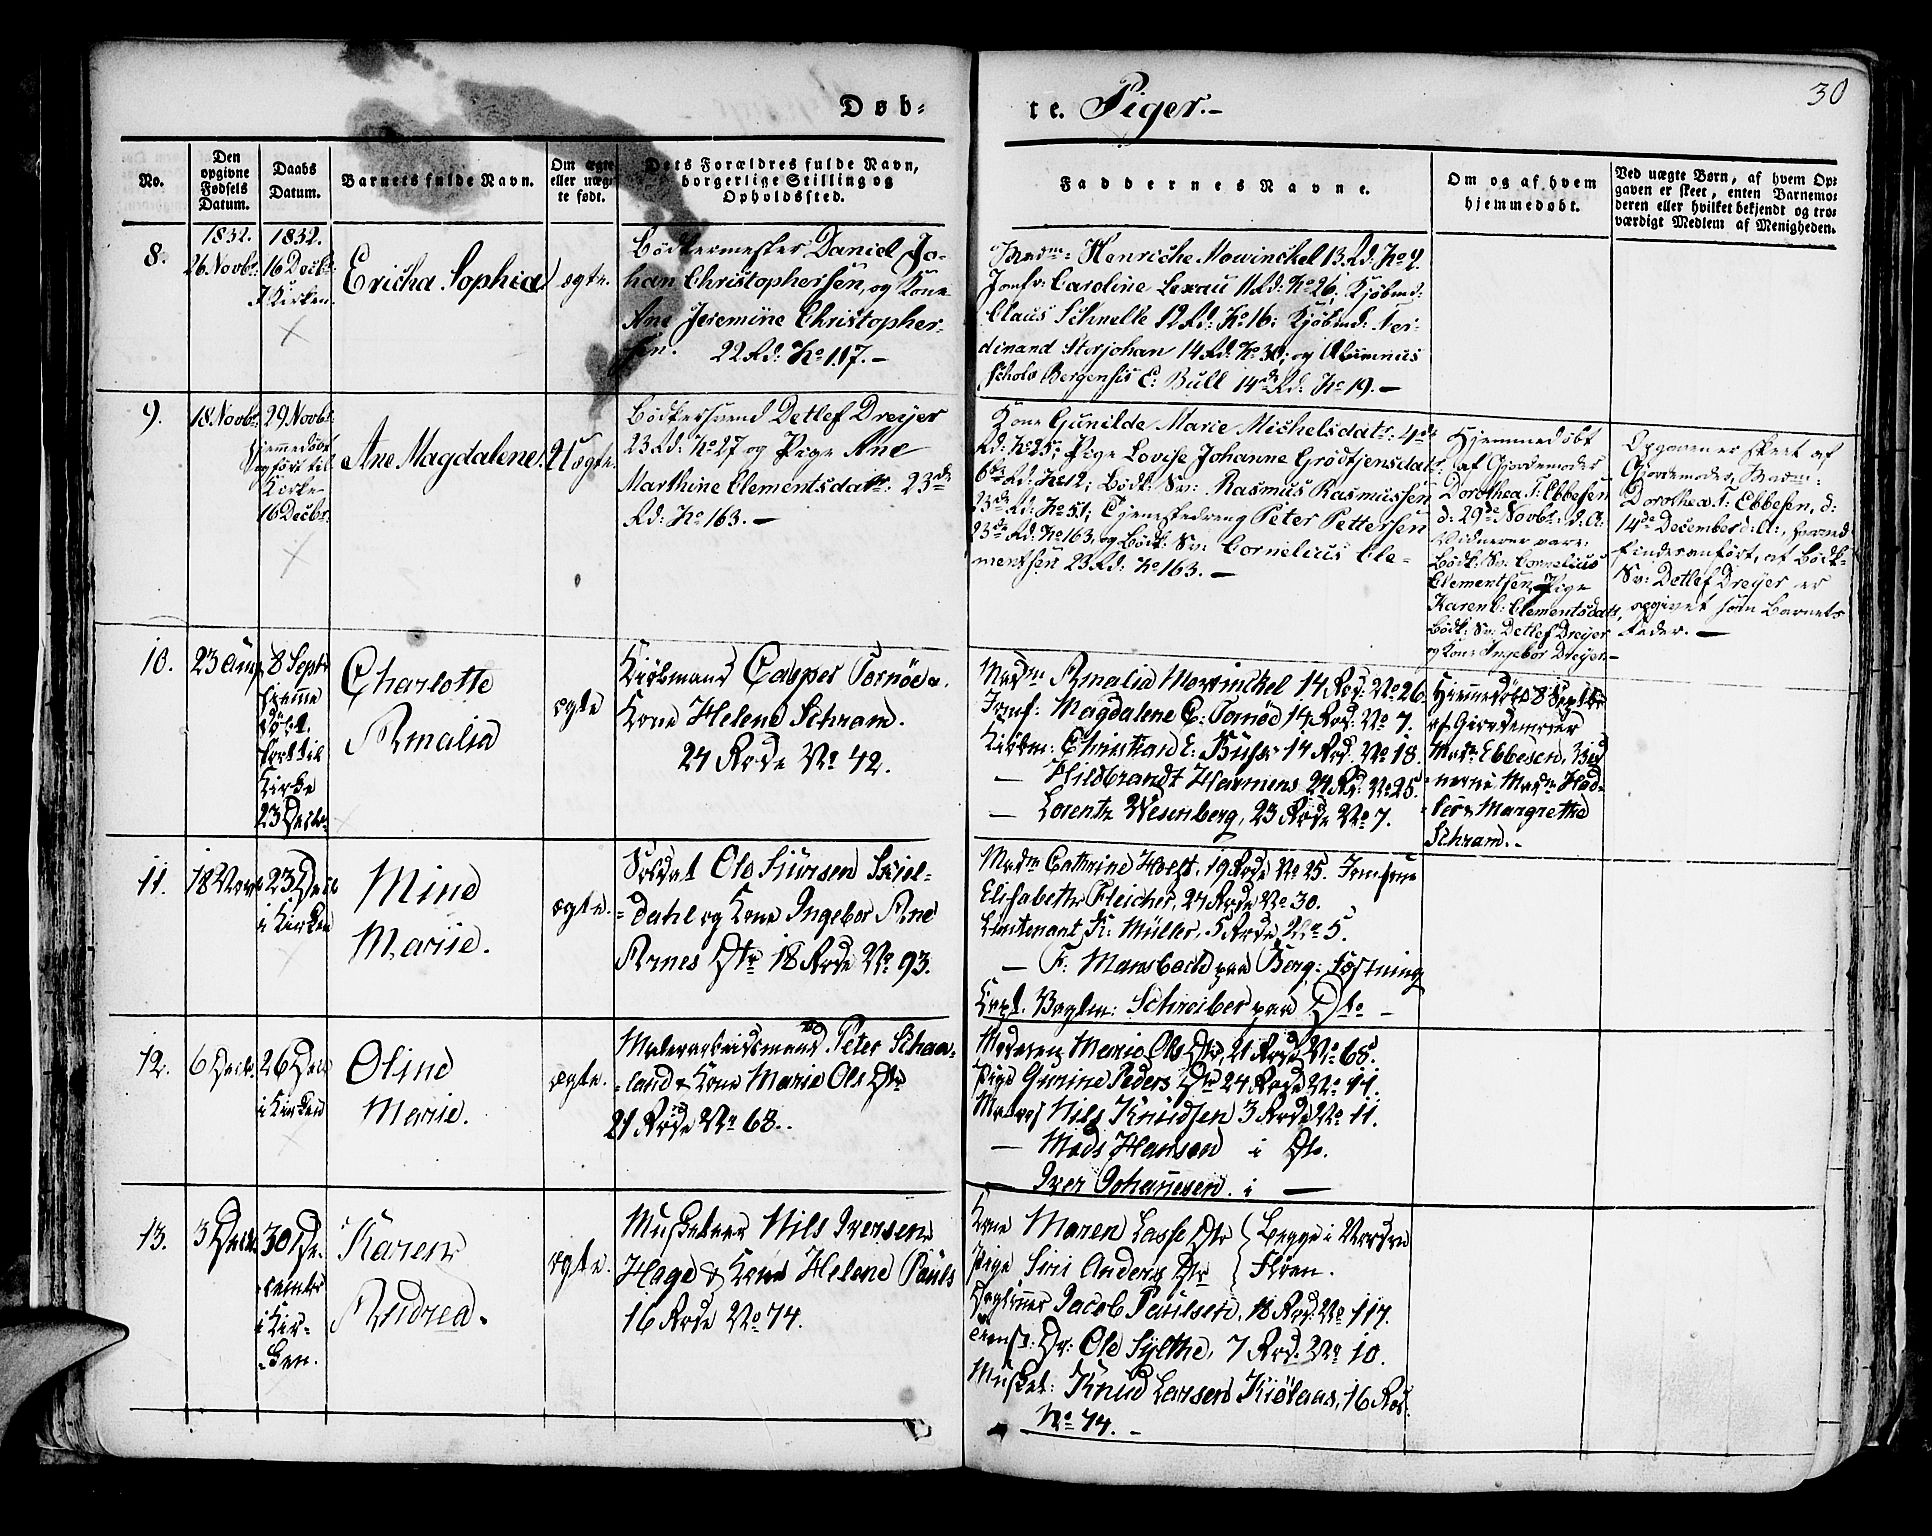 30
Døb-
te. Piger.-
No.
Den opgivne Fødsels Datum.
Daabs Datum.
Barnets fulde Navn.
Om ægte eller uægte født.
Dets Forældres fulde Navn, borgerlige Stilling og Opholdssted.
Faddernes Navne.
Om og af hvem hjemmedøbt.
Ved uægte Børn, af hvem Opgaven er skeet, enten Barnemoderen eller hvilket bekjendt og troværdigt Medlem af Menigheden.
8.
1832.
26 Novbr.
1832.
16 Decbr.
I Kirken.
Ericha Sophia
ægte.
Bødkermester Daniel Jo-
han Christophersen, og Kone
Ane Jeremine Christopher-
sen. 22 Rd: No 117.-
Madm: Henriche Mowinckel 13. Rd: No 9.
Jomfr: Caroline Lexau 11 Rd: No 26; Kjøbmd:
Claus Schnelle 12 Rd: No 16; Kjøbmd: Fer-
dinand Storjohan 14 Rd: No 30; og Alumnus
Scholæ Bergensis E: Bull 14de Rd: No 19.-
9.
18 Novbr.
29 Novbr.
Hjemmedøbt
og ført til
Kirke
16 Decbr.
Ane Magdalene.
Uægte.
Bødkersvend Detlef Dreyer
23 Rd: No 27 og Pige Ane
Marthine Clementsdatr: 23de
Rd: No 163.-
Kone Gunilde Marie Michelsdatr: 4de
Rd: No 25; Pige Lovise Johanne Grødtjensdatr:
6te Rd: No 12; Bødk: Sv: Rasmus Rasmussen
23de Rd: No 51; Tjenestedreng Peter Pettersen
23de Rd: No 163, og Bødk: Sv: Cornelius Cle-
mentsen 23 Rd: No 163.-
Hjemmedøbt
af Gjordemoder
Dorothea T: Ebbesen
d: 29de Novbr: d: A:
Vidnerer vare:
Bødk: Sv: Cornelius
Clementsen, Pige
Karen C: Clementsdatr,
Bødk: Sv: Detlef Dreyer
og Kone Ingebor Dreyer.-
Opgaven er skeet af
Gjordemoder, Madm:
Dorothea T: Ebbesen, d:
14de December d: A:, hvorved
findes anført, at Bødk-
Sv: Detlef Dreyer er
opgivet som Barnets
Fader.-
10.
23 Aug.
8 Septr
hjemme
døbt.
ført til
Kirke
23 Decbr.
Charlotte
Amalia
ægte
Kiøbmand Casper Tornøe &
Kone Helene Schram.
24 Rode No 42.
Madm Amalia Mowinckel 14 Rod: No 26.
Jomf: Magdalene C: Tornøe 14 Rod: No 7.
Kiøbm: Christian C: Büsh 14 Rod. No 18.
— Hildbrandt Harmens 24 Rd: No 25.
— Lorentz Wesenberg, 23 Rode No 7.
Hjemmedøbt 8 Septbr
af Giordemoder
Madm Ebbesen, Vid-
nerne Madm
Margrethe
Schram.-
11.
18 Novb
23 Decb
i Kirken
Mine
Mariie.
ægte.
Soldat Ole Siursen Skiel-
dahl og Kone Ingebor Ane
Arnes Dtr 18 Rode No 93.
Madm Cathrine Holst, 19 Rode No 25. Jomfrue
Elisabeth Fleicher, 24 Rode No 30.
Lieutenant K: Müller, 5 Rode No 5.
— F: Mansbach paa Berg: Fæstning
Schreiber paa Dto -
12.
6 Decbr.
26 Decb
i Kirken
Oline
Marie.
ægte.
Peter Schaa-
land & Kone Marie Ols Dtr
21 Rode No 68..
Marie Ols Dtr, 21 Rode No 68.
Pige Gurine Peders Dtr 24 Rode No 11.
Matros Nils Knudsen 3 Rode No 11.
— Mads Hansen i Do.
— Iver Johannesen. i —
13.
3 Decbr.
30 De-
cember
i Kir-
ken.
Karen
Andrea.
ægte.
Musketeer Nils Iversen
Hage & Kone Helene Pauls
16 Rode No 74.
Kone Maren Lasse Dtr
Pige Siri Anders Dtr
Begge i
Jacob Paulsen, 18 Rod: No 117.
Tienst: Dr: Ole Sylthe, 7 Rod: No 10.
Musket: Knud Larsen Kiølaas, 16 Rod:
No 74.-